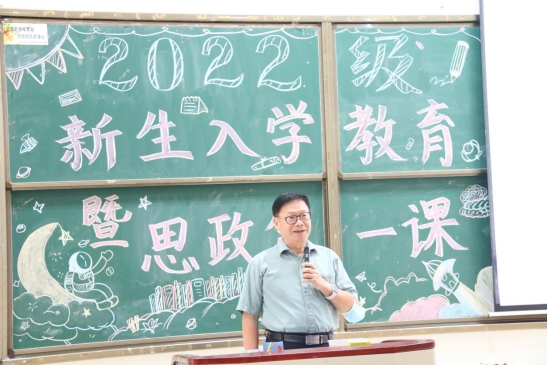 2022级
新生入学教育
暨思政一课